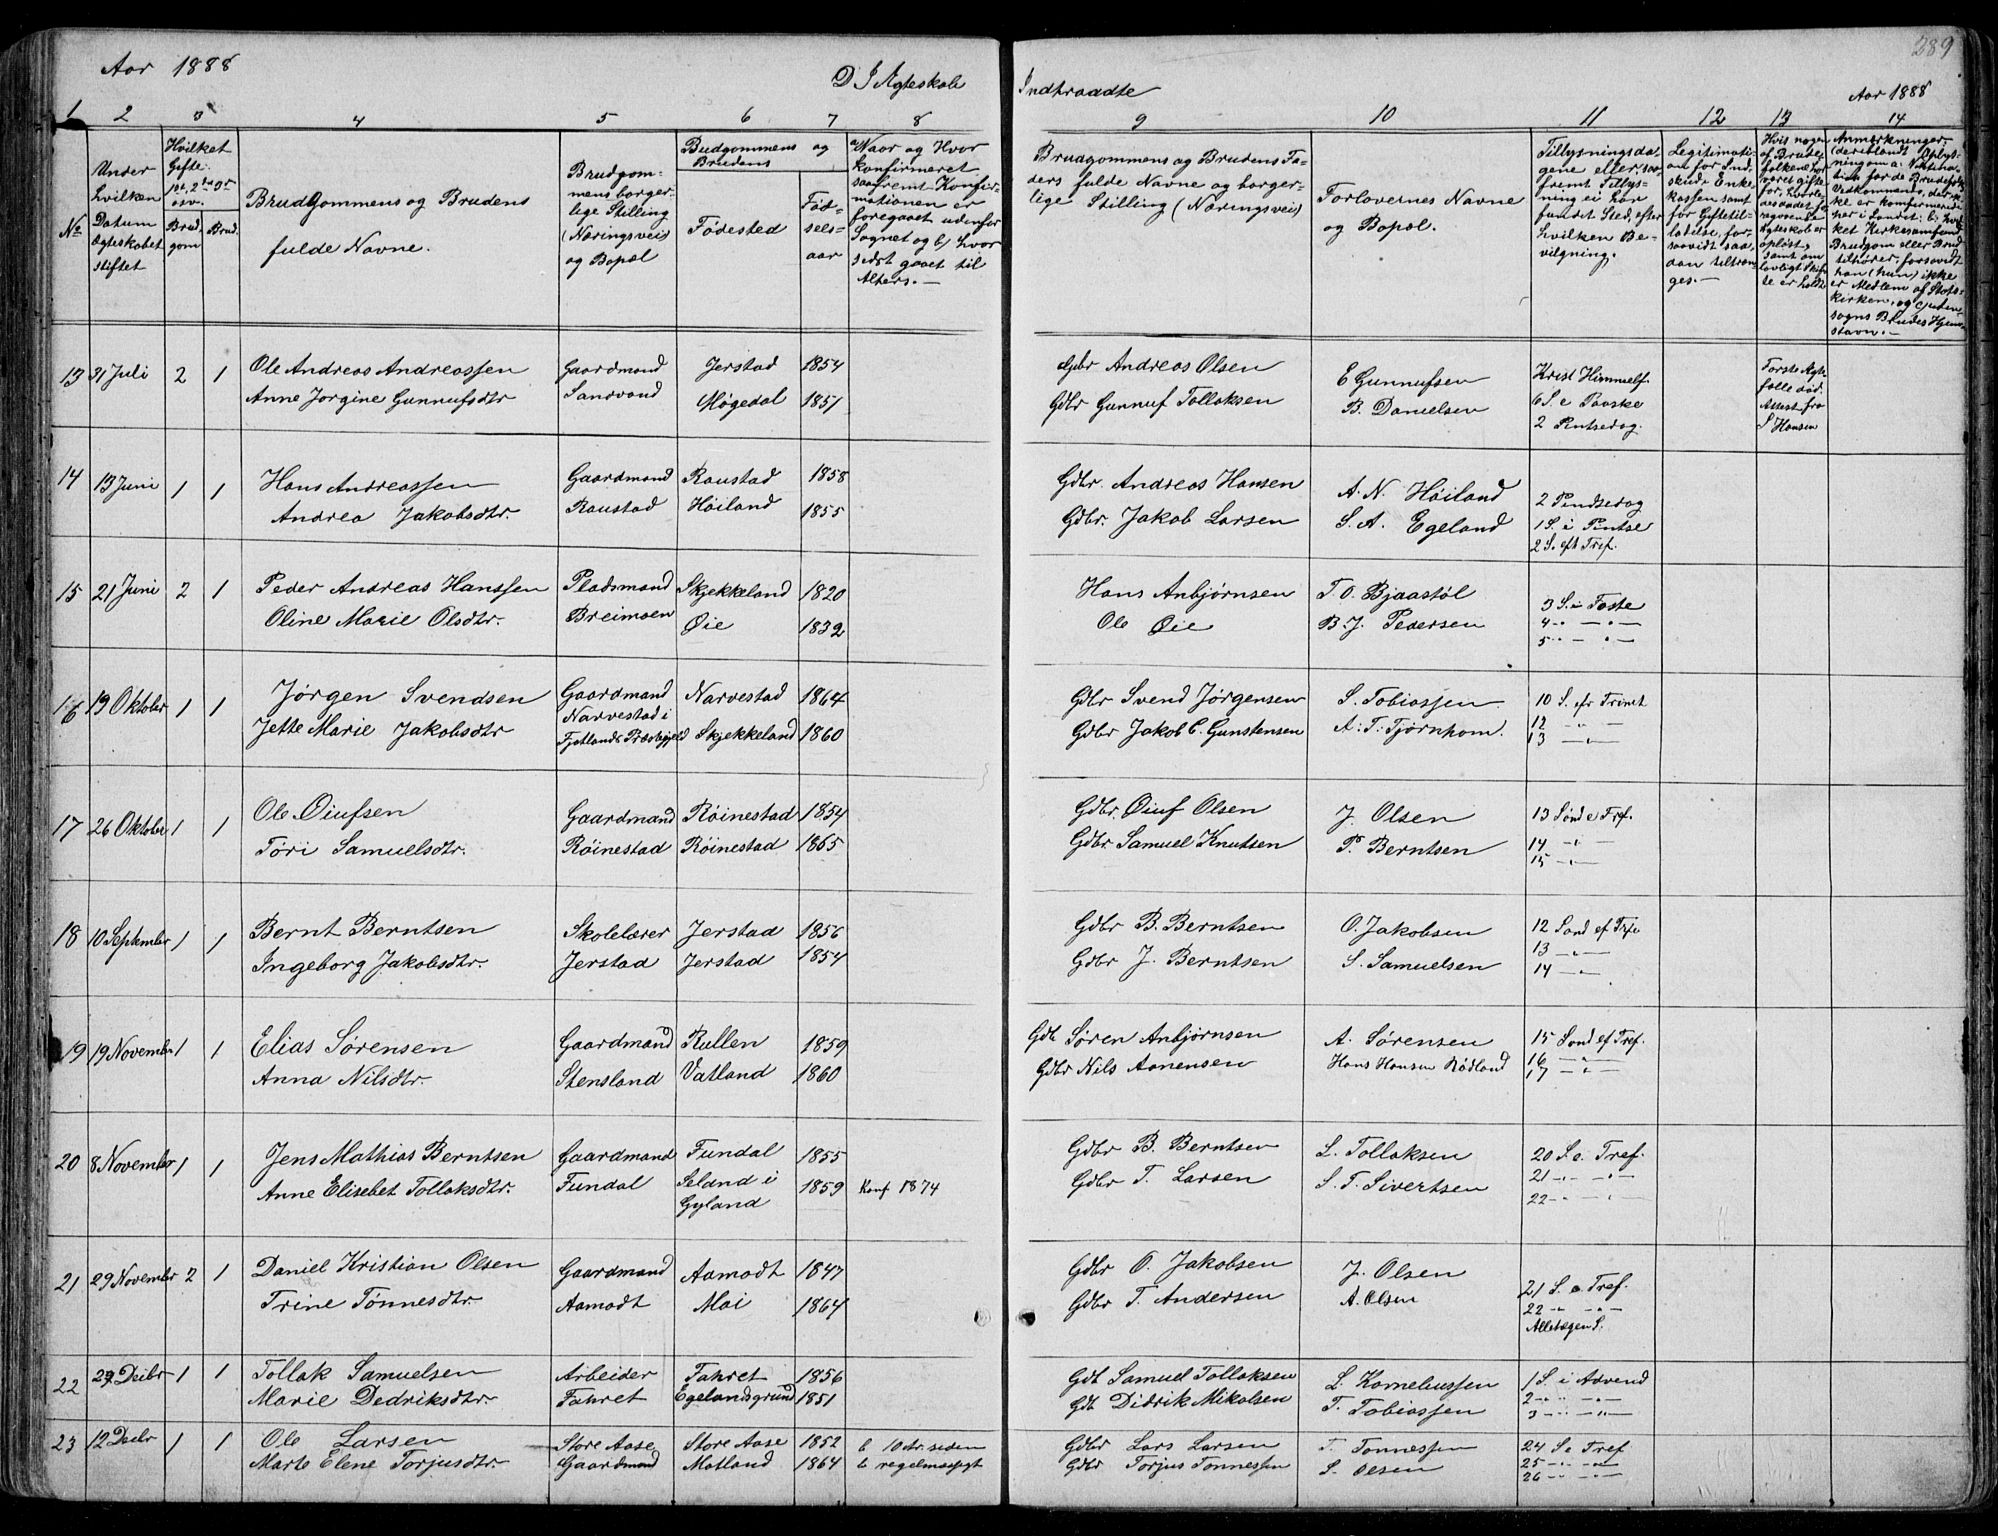 289
Aar 1888
D I Ægteskab
Indtraadte
Aar 1888
1 2 3 4 5 6 7 8
9 10 11 12 13 14
No
Under hvilken Datum Ægteskabet stiftet
Hvilket Gifte: 1ste, 2det osv.
Brudgom
Brud.
Brudgommens og Brudens fulde Navne.
Brudgommens borgerlige Stilling (Næringsvei) og Bopæl
Budgommens og Brudens
Födested
Födselsaar
Naar og Hvor konfirmeret saafremt Konfirmationen er foregaaet udenfor Sognet og b) hvor sidst gaaet til Alters.—
Brudgommens og Brudens Faders fulde Navne og borgerlige Stilling (Næringsvei)
Forlovernes Navne og Bopæl.
Tillysningsdagene eller, saafremt Tillysning ei har fundet Sted, efter hvilken Bevilgning.
Legitimation for Indskud i Enkekassen samt for Giftetilladelse, forsaavidt saadan tiltrænges.—
13 31 Juli 2 1
Ole Andreas Andreassen
Anne Jorgine Gunnufsdtr
Gaardmand
Sandvand
Jerstad 1854
Møgedal 1851
Gbr Andreas Olsen
Gdbr Gunnuf Tollaksen
E Gunnufsen
B. Danielsen
Krist Himmelf.
6 S. e Paaske
2 Pintsedag.
Første Ægtefelle död.
Attest fra
S Hansen
14 13 Juni 1 1
Hans Andreassen
Andrea Jakobsdtr.
Gaardmand
Raustad
Raustad 1858
Höiland 1855
Gdbr. Andreas Hansen
Gdbr. Jakob Larsen
A. N. Höiland
S. A. Egeland
2 Pindsedag
1 S. i Pintse
2 S. eft Tref.
15 21 Juni 2 1
Peder Andreas Hanssen
Oline Marie Olsdtr.
Pladsmand
Breimoen
Skjekkeland 1820
Øie 1832
Hans Anbjørnsen
Ole Øie
T. O. Bjaastöl
B. J. Pedersen
3 S. i Faste
4 " — " —
5 " — " —
16 19 Oktober 1 1
Jørgen Svendsen
Jette Marie Jakobsdtr
Gaardmand
Narvestad i
Fjotlands Præstegjeld
Narvestad 1864
Skjekkeland 1860
Gdbr Svend Jørgensen
Gdbr Jakob C. Gunstensen
S. Tobiassen
A. T. Tjørnhom.
10 S. efr Trinit
12 — " —
13 — " —
17 26 Oktober 1 1
Ole Öiufsen
Töri Samuelsdtr.
Gaardmand
Röinestad
Röinestad 1854
Röinestad 1865
Gdbr. Öiuf Olsen
Gdbr Samuel Knutsen
J. Olsen
P. Berntsen
13 Sönd e Tref.
14 — " —
15 — " —
18 10 September 1 1
Bernt Berntsen
Ingeborg Jakobsdtr.
Skolelærer
Jerstad
Jerstad 1856
Jerstad 1854
Gdbr B. Berntsen
Gdbr J. Berntsen
O. Jakobsen
S. Samuelsen
12 Sond ef Tref
13 — " —
14 — " —
19 19 November 1 1
Elias Sørensen
Anna Nilsdtr.
Gaardmand
Stensland
Rullen 1859
Vatland 1860
Gdb Søren Anbjørnsen
Gdbr Nils Aanensen
A. Sørensen
Hans Hansen Rödland
15 Sond ef Tref.
16 — " —
17 — " —
20 8 November 1 1
Jens Mathias Berntsen
Anne Elisebet Tollaksdtr.
Gaardmand
Fundal
Fundal 1855
Seland i
Gyland 1859
Konf 1874
Gdbr B. Berntsen
Gdbr T. Larsen
L. Tollaksen
S. T. Sivertsen
20 S. e. Tref.
21 — " — " —
22 — " — " —
21 29 November 2 1
Daniel Kristian Olsen
Trine Tönnesdtr.
Gaardmand
Aamodt
Aamodt 1847
Moi 1864
Gdbr O. Jakobsen
Gdbr T. Andersen
J. Olsen
A. Olsen
21 S. e Tref.
22 " — " —
Allehegen S.
22 Dcibr 1 1
Tollak Samuelsen
Marie Dedriksdtr.
Arbeider
Fahret
Fahret 1856
Egelandsgrund 1851
Gdb Samuel Tollaksen
Gdb Didrik Mikalsen
L. Korneliussen
T. Tobiassen
1 S. i Advend
2 — " — " —
3 — " — " —
23 12 Dcibr 1 1
Ole Larsen
Marte Elene Torjusdtr.
Store Aase
Gaardmand
Store Aase 1852
Matland 1864
b 10 Ar. siden
b regelmæssigt
Gdbr Lars Larsen
Gdbr Torjus Tonnessen
T. Tonnessen
S. Olsen
24 S. e Tref
25 — " — " —
26 — " — " —